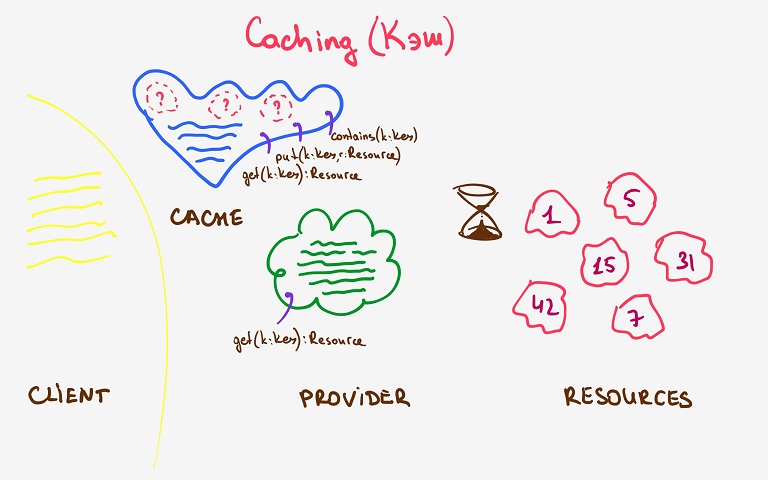 Caching (Кэш)
?
?
?
contains(k:Key)
put(k:Key,r:Resource)
get(k:Key):Resource
CACHE
1
5
15
31
42
7
get(k:Key):Resource
CLIENT
PROVIDER
RESOURCES